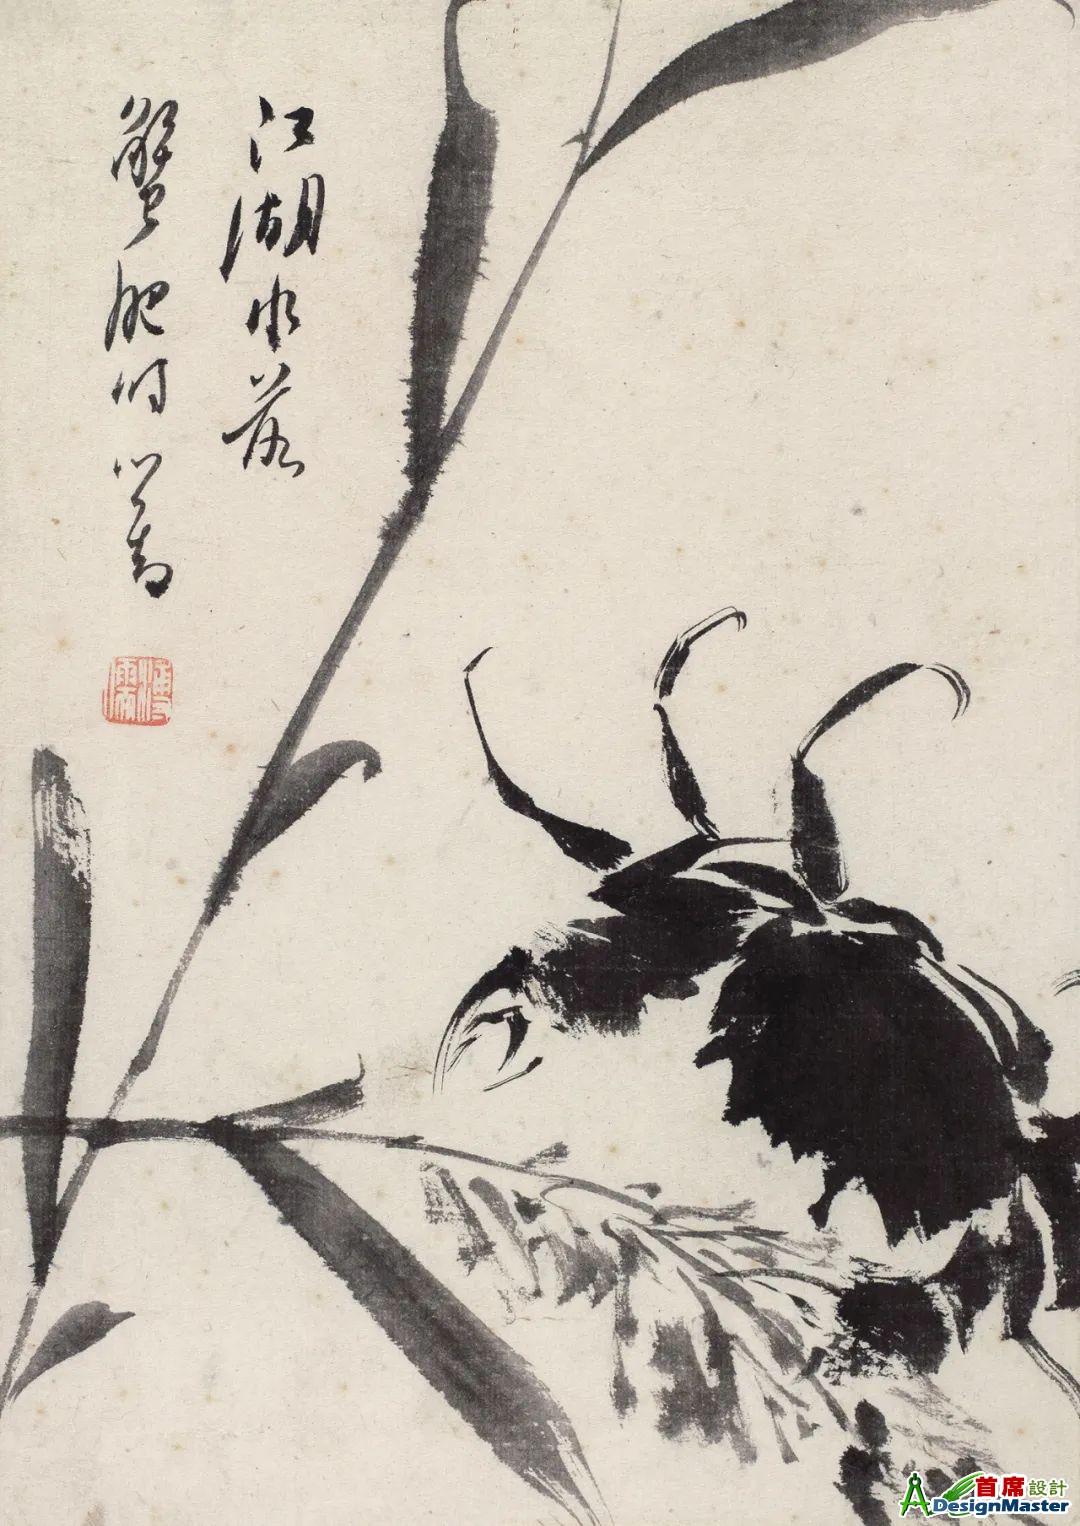 江湖水落
蟹肥时 心畬
溥儒
首席設計
DesignMaster